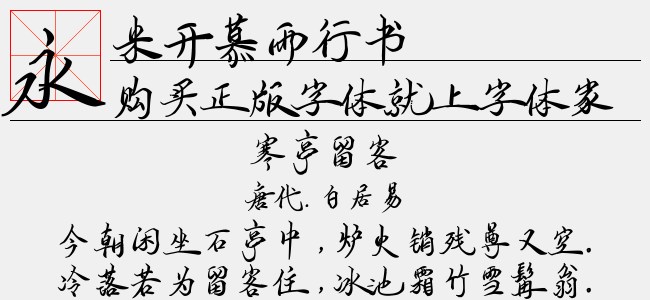 永
米开慕雨行书
购买正版字体就上字体家
寒亭留客
唐代.白居易
今朝闲坐石亭中,炉火销残尊又空.
冷落若为留客住,冰池霜竹雪髯翁.